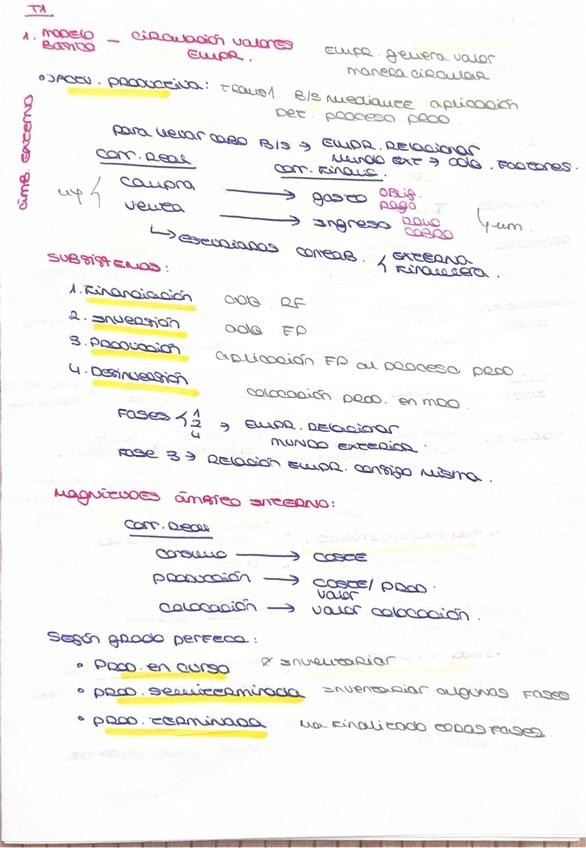 T1
1. MODELO BÁSICO – CIRCULACIÓN VALORES EMPR.
EMPR. genera valor
manera circular
ACTIV. PRODUCTIVA: transf. B/S mediante aplicación
det. proceso prod.
ámb. externo
para llevar cabo B/S → EMPR. RELACIONAR
MUNDO EXT → OBTB. FACTORES.
Corr. Real
Corr. Financ.
compra → gasto OBLIG. PAGO
venta → ingreso DCHO COBRO
um.
↳ estudiadas contab. EXTERNA
FINANCIERA.
SUBSISTEMAS:
1. Financiación obtb. RF
2. Inversión obtb FP
3. Producción aplicación FP al proceso prod
4. Desinversión colocación prod. en mdo.
FASES 1 2 4 → EMPR. RELACIONAR
MUNDO EXTERIOR.
FASE 3 → RELACIÓN EMPR. CONSIGO MISMA.
MAGNITUDES ÁMBITO INTERNO:
Corr. Real
consumo → COSTE
producción → COSTE/VALOR PROD.
colocación → valor colocación.
Según grado perfecc:
• Prod. en curso ∅ inventariar
• prod. semiterminada inventariar algunas fases
• prod. terminada ha finalizado todas fases.